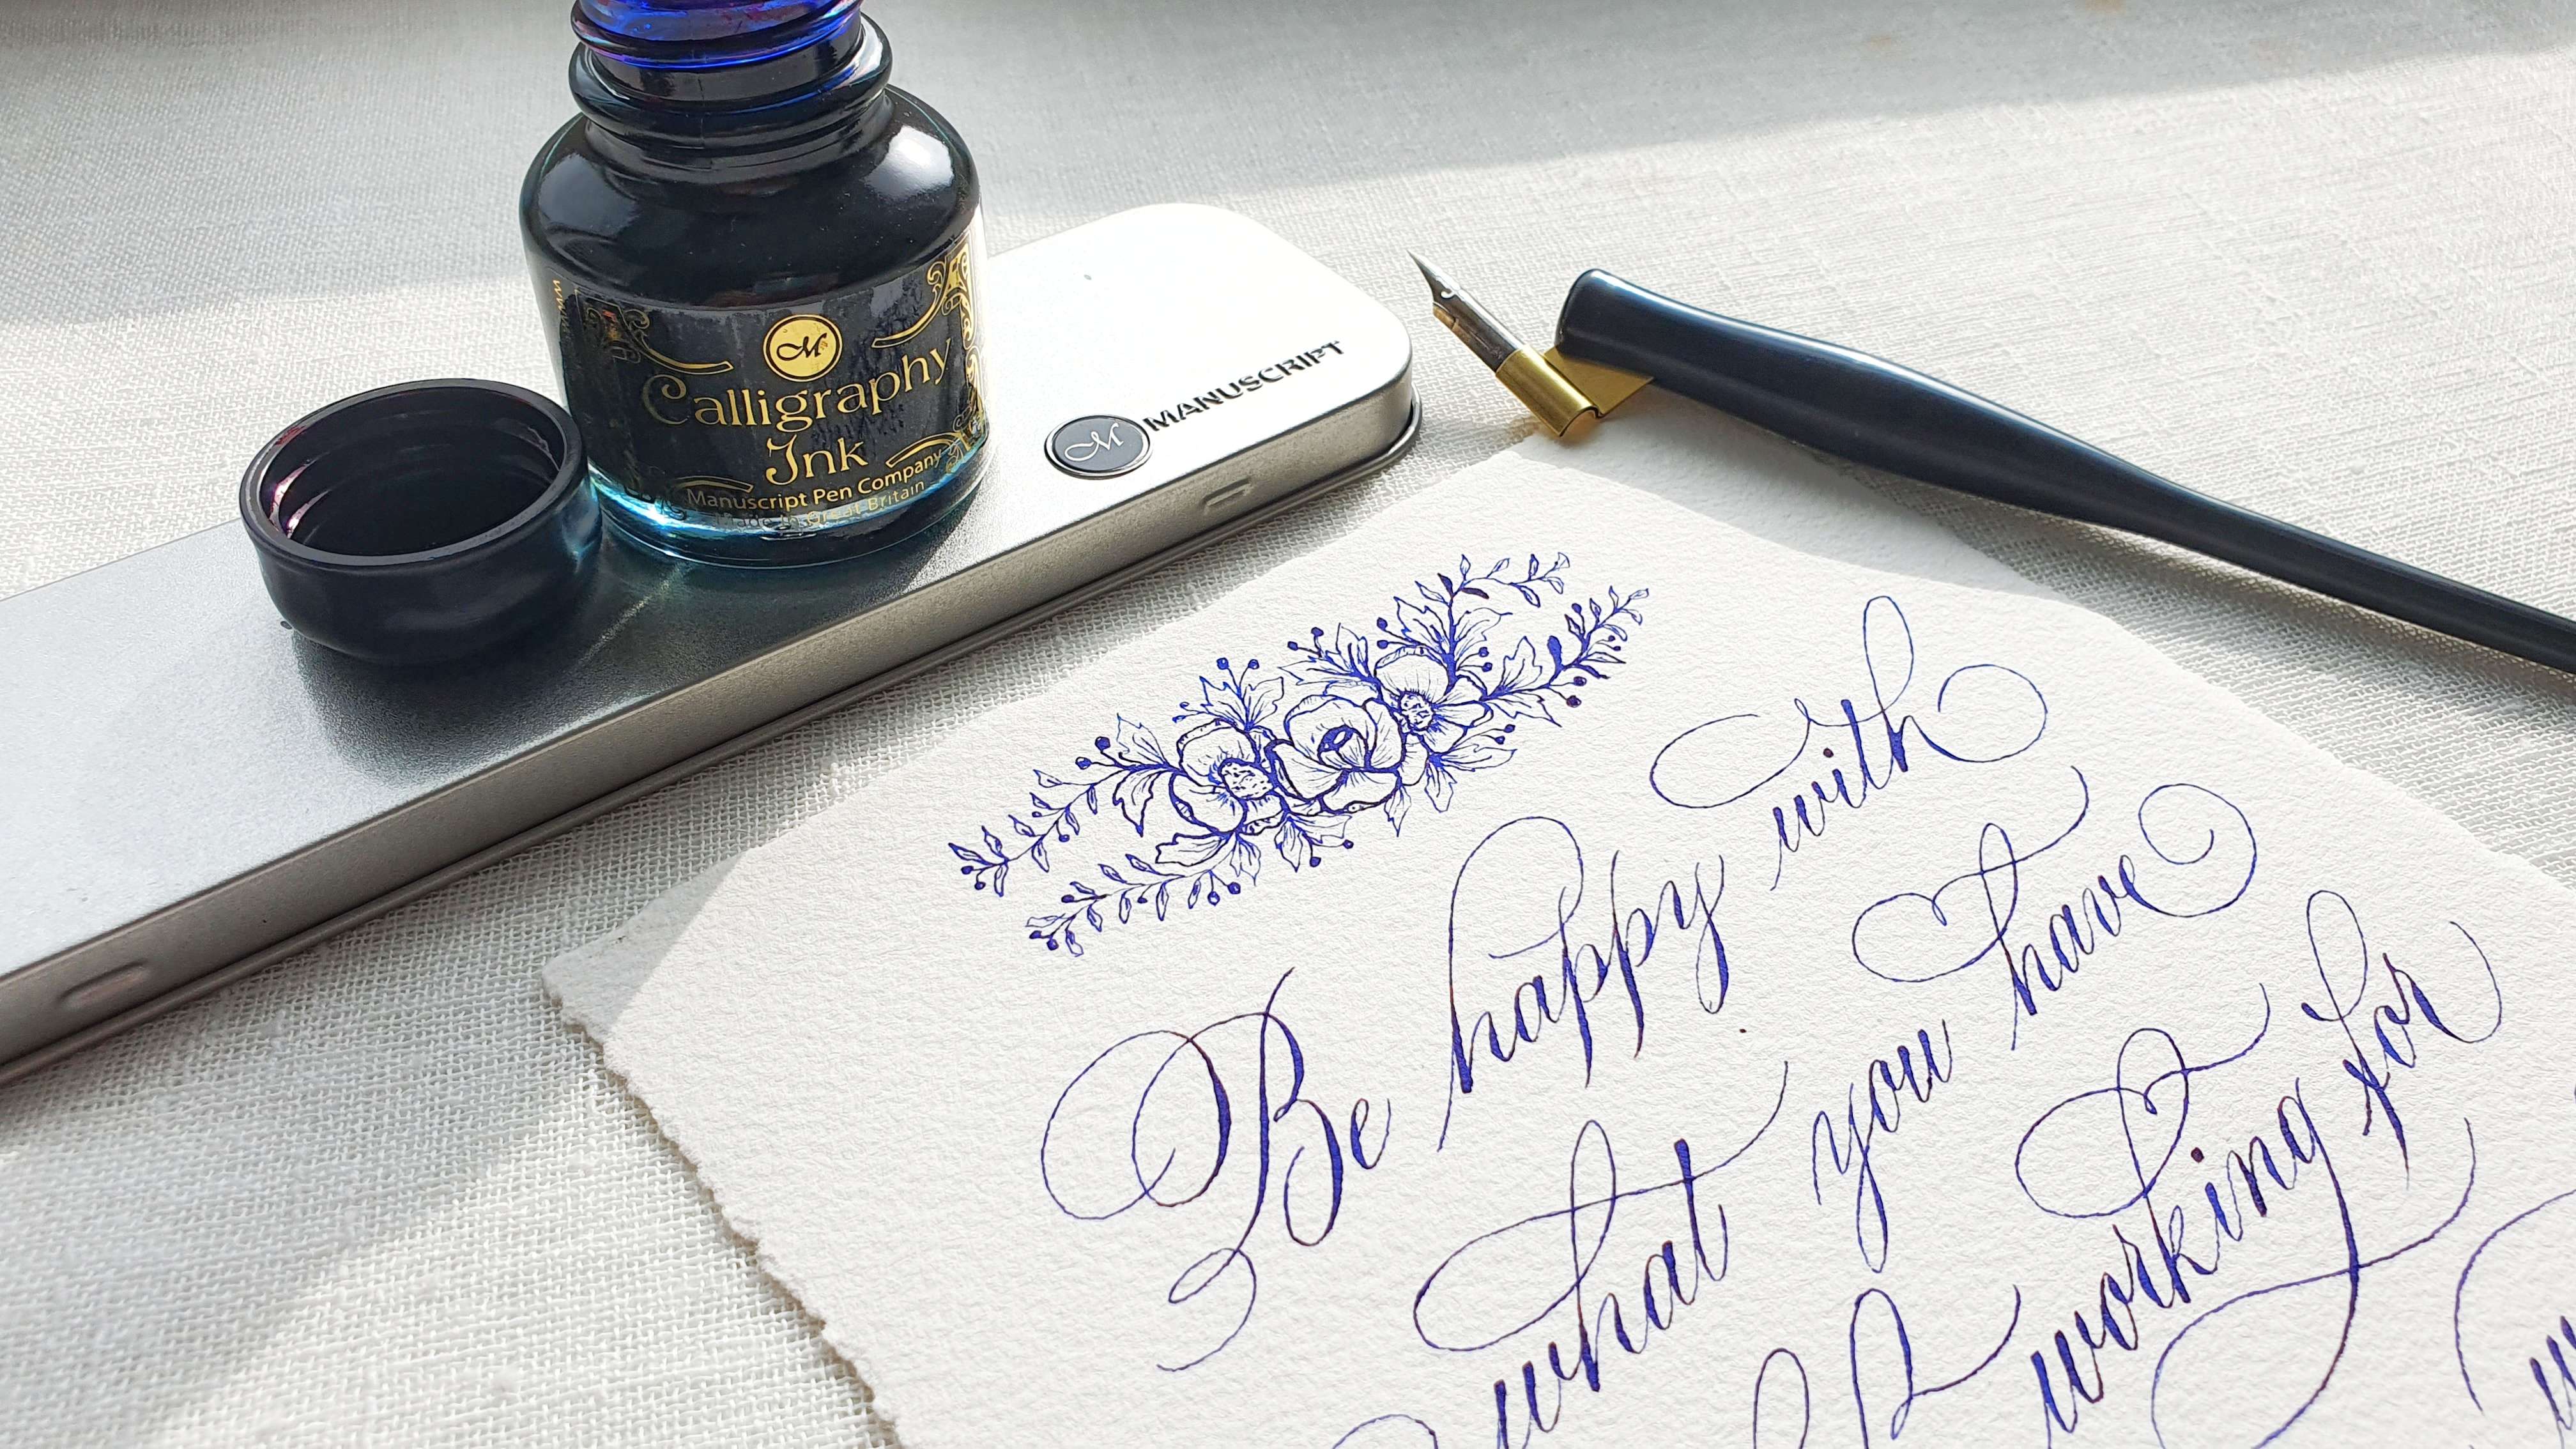 Calligraphy
Ink
Manuscript Pen Company
Made in Great Britain
MANUSCRIPT
Be happy with
what you have
working for